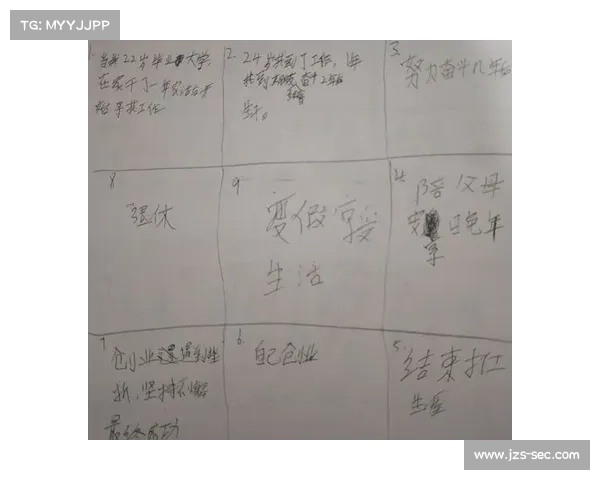 TG: MYYJJPP
1. 当我22岁毕业大学,
在家干了一年
始寻找工作
2. 24岁找到了工作,
找到 奋斗2年后
结婚
生子。
3.
努力奋斗几年后
8
退休
9
度假享受
生活
4.
陪父母
安享晚年
7
创业遇到挫
折,坚持不懈
最终成功
6.
自己创业
5.
结束打工
生涯
www.jzs-sec.com